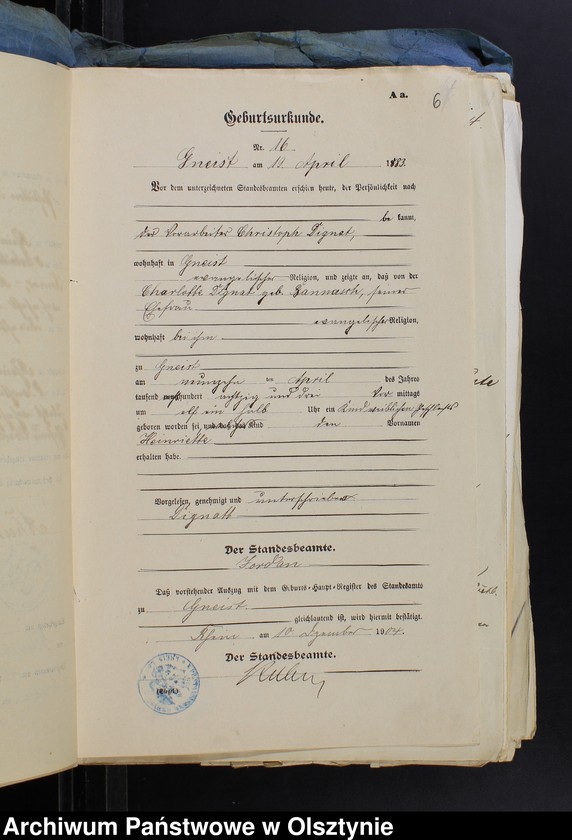 A a.
6
Geburtsurkunde.
Nr. 16
Gneist am 19. April 1883.
Vor dem unterzeichneten Standesbeamten erschien heute, der Persönlichkeit nach
be kannt,
der Vorarbeiter Christoph Dignat,
wohnhaft in Gneist
evangelischer Religion, und zeigte an, daß von der
Charlotte Dignat geb. Bannasch, seiner
Ehefrau
evangelischer Religion,
wohnhaft bei ihm
zu Gneist
am neunzehn ten April des Jahres
tausend acht hundert achtzig und drei Vor mittags
um elf ein halb Uhr ein Kind weiblichen Geschlechts
geboren worden sei, und daß das Kind den Vornamen
Heinriette
erhalten habe.
Vorgelesen, genehmigt und unterschrieben
Dignatt
Der Standesbeamte.
Jordan
Daß vorstehender Auszug mit dem Geburts-Haupt-Register des Standesamts
zu Gneist
gleichlautend ist, wird hiermit bestätigt.
Rhein am 10 Dezember 1904.
Der Standesbeamte.
Archiwum Państwowe w Olsztynie